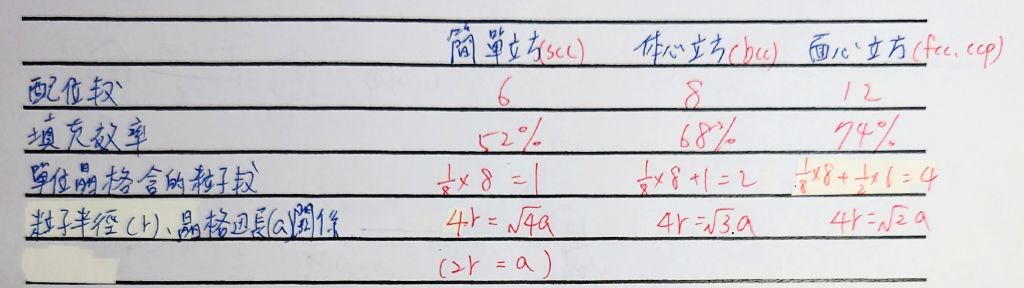 簡單立方(scc) 体心立方(bcc) 面心立方(fcc.ccp)
配位数 6 8 12
填充效率 52% 68% 74%
單位晶格含的粒子数 1/8×8=1 1/8×8+1=2 1/8×8+1/2×6=4
粒子半徑(r)、晶格边長(a)關係 4r=√4a 4r=√3.a 4r=√2a
(2r=a)